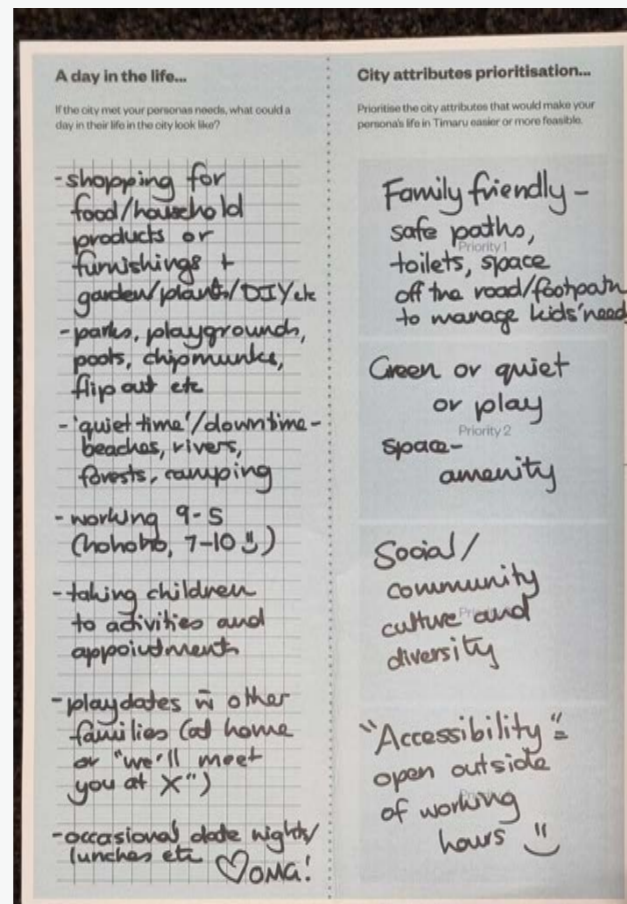 A day in the life...
If the city met your personas needs, what could a
day in their life in the city look like?
-shopping for
food/household
products or
furnishings +
garden/plants/DIY etc
-parks, playgrounds,
pools, chipmunks,
flip out etc
-'quiet time'/downtime-
beaches, rivers,
forests, camping
-working 9-5
(hohoho, 7-10 )
-taking children
to activities and
appointments
-playdates w other
families (at home
or "we'll meet
you at X")
-occasional date nights/
lunches etc ♡OMG!
City attributes prioritisation...
Prioritise the city attributes that would make your
persona's life in Timaru easier or more feasible.
Family friendly -
safe paths,
Priority 1
toilets, space
off the road/footpath
to manage kids' need
Green or quiet
or play
Priority 2
space-
amenity
Social/
community
culture and
diversity
"Accessibility" =
open outside
of working
hours